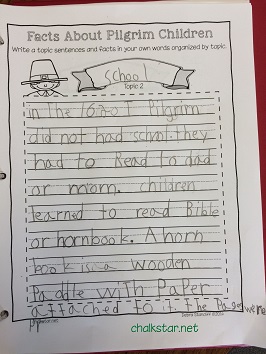 Facts About Pilgrim Children
Write a topic sentences and facts in your own words organized by topic.
School
Topic 2
in the 1620 I Pilgrim
did not had school. they
had to Read to dad
or mom. children
learned to read Bible
or hornbook. A horn
book is a wooden
Paddle with Paper
attached to it. the Pages were
chalkstar.net